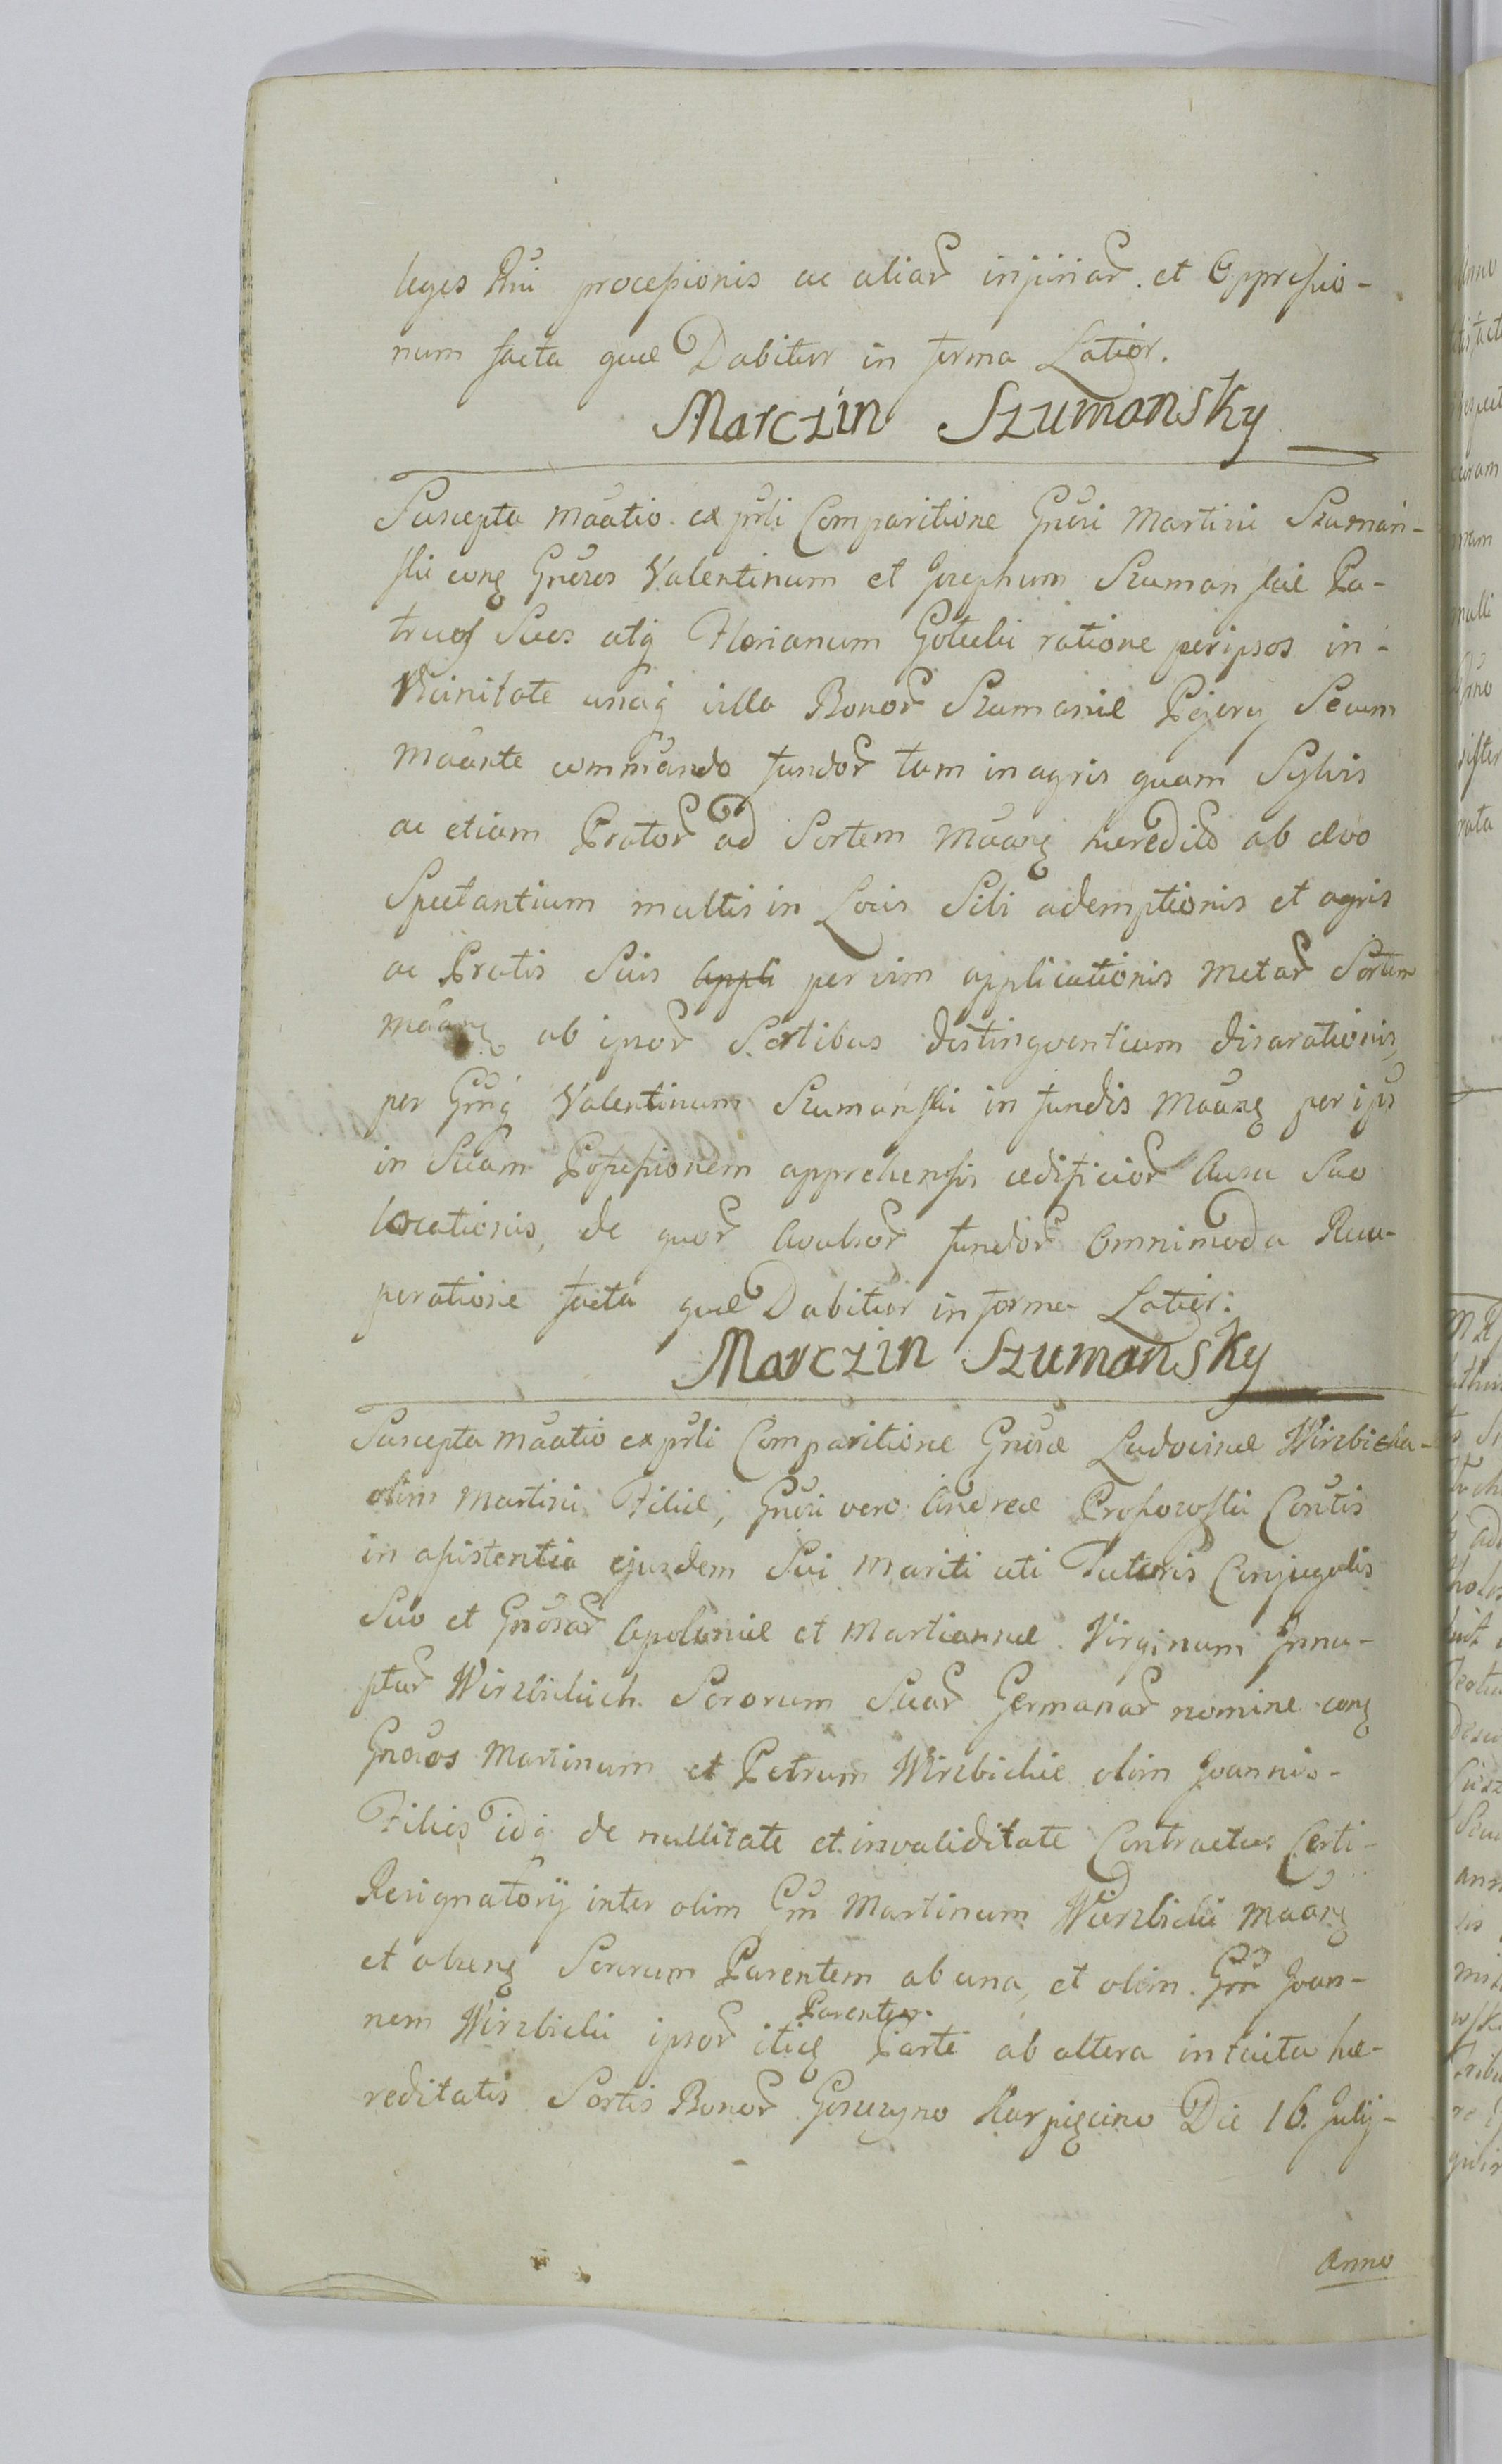 leges Rni processionis ac aliar injuriar. et Oppressio-
num facta quæ Dabitur in forma Latior.
Marczin Szumansky
Suscepta Maatio. ex psli Comparitione Gnosi Martini Szumań-
ski conq Gnosos Valentinum et Josephum Szumanskie Pa-
truos Suos atq Florianum Gołubi ratione per ipsos in-
Vicinitate unaq villa Bonor Szumanie Pejory Secum
Maante commando fundor tam in agris quam Sylvis
ac etiam Prator ad Sortem Maanq heredito ab ævo
Spectantium multis in Locis Sibi ademptionis et agris
ac Pratis Suis appli per vim applicationis Metar Sortem
Maanq ab ipsor Sortibus distinguentium disarationis,
per Gnq Valentinum Szumański in fundis Maanq per ips
in Suam Possessionem apprehensis ædificior Ausu Suo
locationis, de quor Avulsor fundor Omnimoda Recu-
peratione facta quæ Dabitur in forma Latior.
Marczin Szumansky
Suscepta Maatio ex psli Comparitione Gnosæ Ludovicæ Wirzbicka-
olim Martini Filiæ, Gnosi vero Andreæ Prosowski Contis
in assistentia ejusdem Sui Mariti uti Tutoris Conjugalis
Suo et Gnosar Apoloniæ et Martiannæ Virginum Innu-
ptar Wirzbickich. Sororum Suar Germanar nomine conq
Gnosos Martinum et Petrum Wirzbickie olim Joannis-
Filios idq de nullitate et invaliditate Contractus Certi-
Resignatorij inter olim Gm Martinum Wierzbicki Maanq
et ahenq Sororum Parentem ab una, et olim Gm Joan-
nem Wirzbicki ipsor itieq Parentem. Parte ab altera intuitu hæ-
reditatis Sortis Bonor Goszczyno Karpięcino Die 16. Julij-
Anno